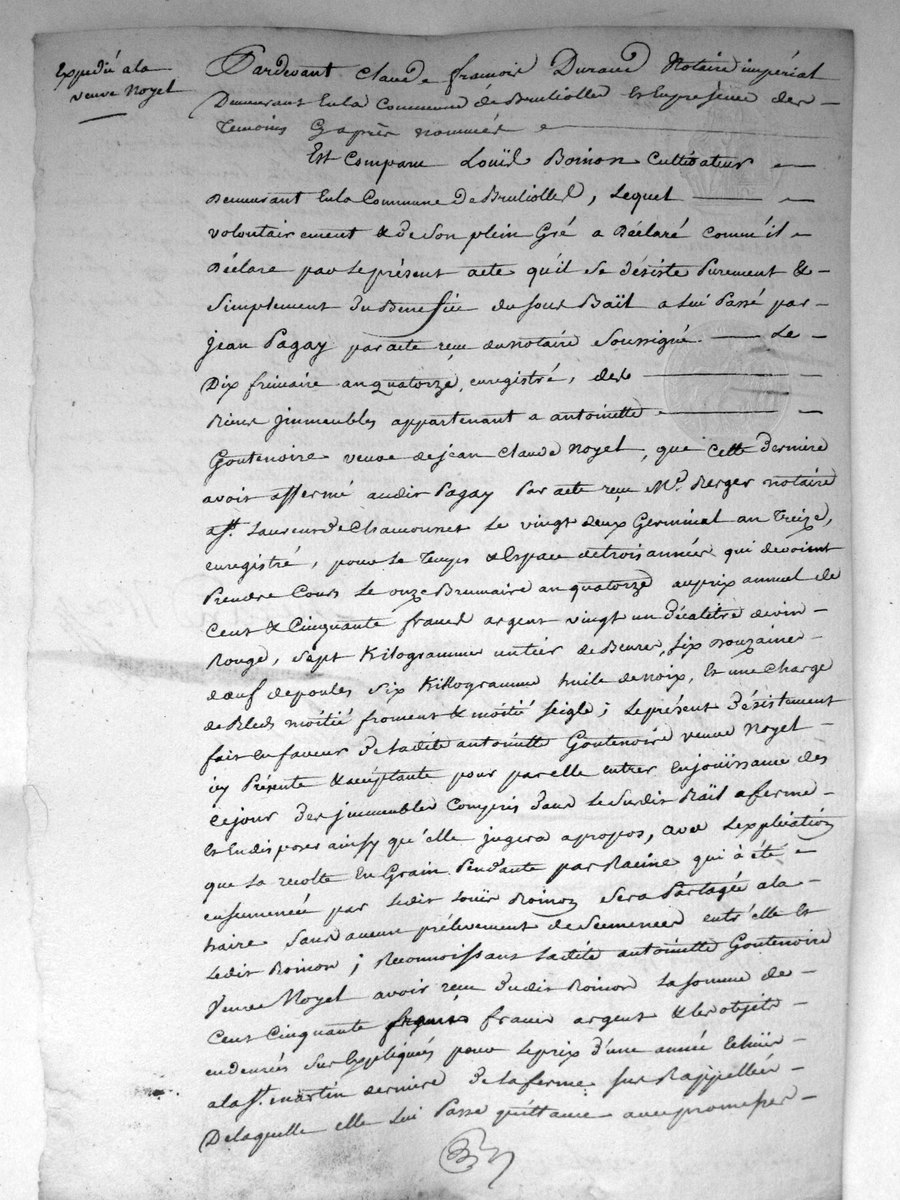 Expedié a la
veuve Noyel
Pardevant Claude françois Durand Notaire impérial
Demeurant En la Commune de Brullioles Et En présence des
Temoins Cy après nommés
Est Comparu Loüis Boinon Cultivateur
Demeurant En la Commune de Brullioles, Lequel
volontairement & de Son plein Gré a Déclaré comm'il
Déclare par Le présent acte qu'il Se désiste Purement &
Simplement du Benefice du Sous Bail a Lui Passé par
jean Pagay par acte reçu du notaire Soussigné Le
Dix frimaire an quatorze, enregistré, des
Biens jmmeubles appartenant a antoinette
Goutenoire veuve de jean Claude Noyel, que Cette derniere
avoit affermé audit Pagay Par acte reçu Me. Berger notaire
a St. Laurent de Chamousset Le vingt deux Germinal an Treize,
enregistré, pour Le Temps & Espace de trois années qui devoient
Prendre Cours Le onze Brumaire an quatorze au prix annuel de
Cent & Cinquante francs argent vingt un décalitre de vin
Rouge, Sept Kilogrammes de Beure, Six Douzaine
d'œuf de poules Six Killogramme huile de noix, Et une Charge
de Bled moitié froment & moitié Seigle; Le présent désistement
fait En faveur de Ladite antoinette Goutenoire veuve Noyel
icy Présente & acceptante pour par elle entrer En joüissance des
Ce jour des jmmeubles Compris dans Le Susdit Bail a ferme
Et En disposer ainsy qu'elle jugera apropos, avec L'explication
que La recolte En Grain Pendante par Racine qui à été
ensemencée par Ledit Loüis Boinon Sera Partagée a la
haire Sans aucun prélevement de Semences entr'elle Et
Ledit Boinon; Reconnoissant Ladite antoinette Goutenoire
Veuve Noyel avoir reçu dudit Boinon La Somme de
Cent Cinquante francs argent & les objets
en denrées Sus Expliqués pour Le prix d'une année Echüe
a la St. martin derniere de La ferme Sus Rappellée
De laquelle elle Lui Passe quittance avec promesse